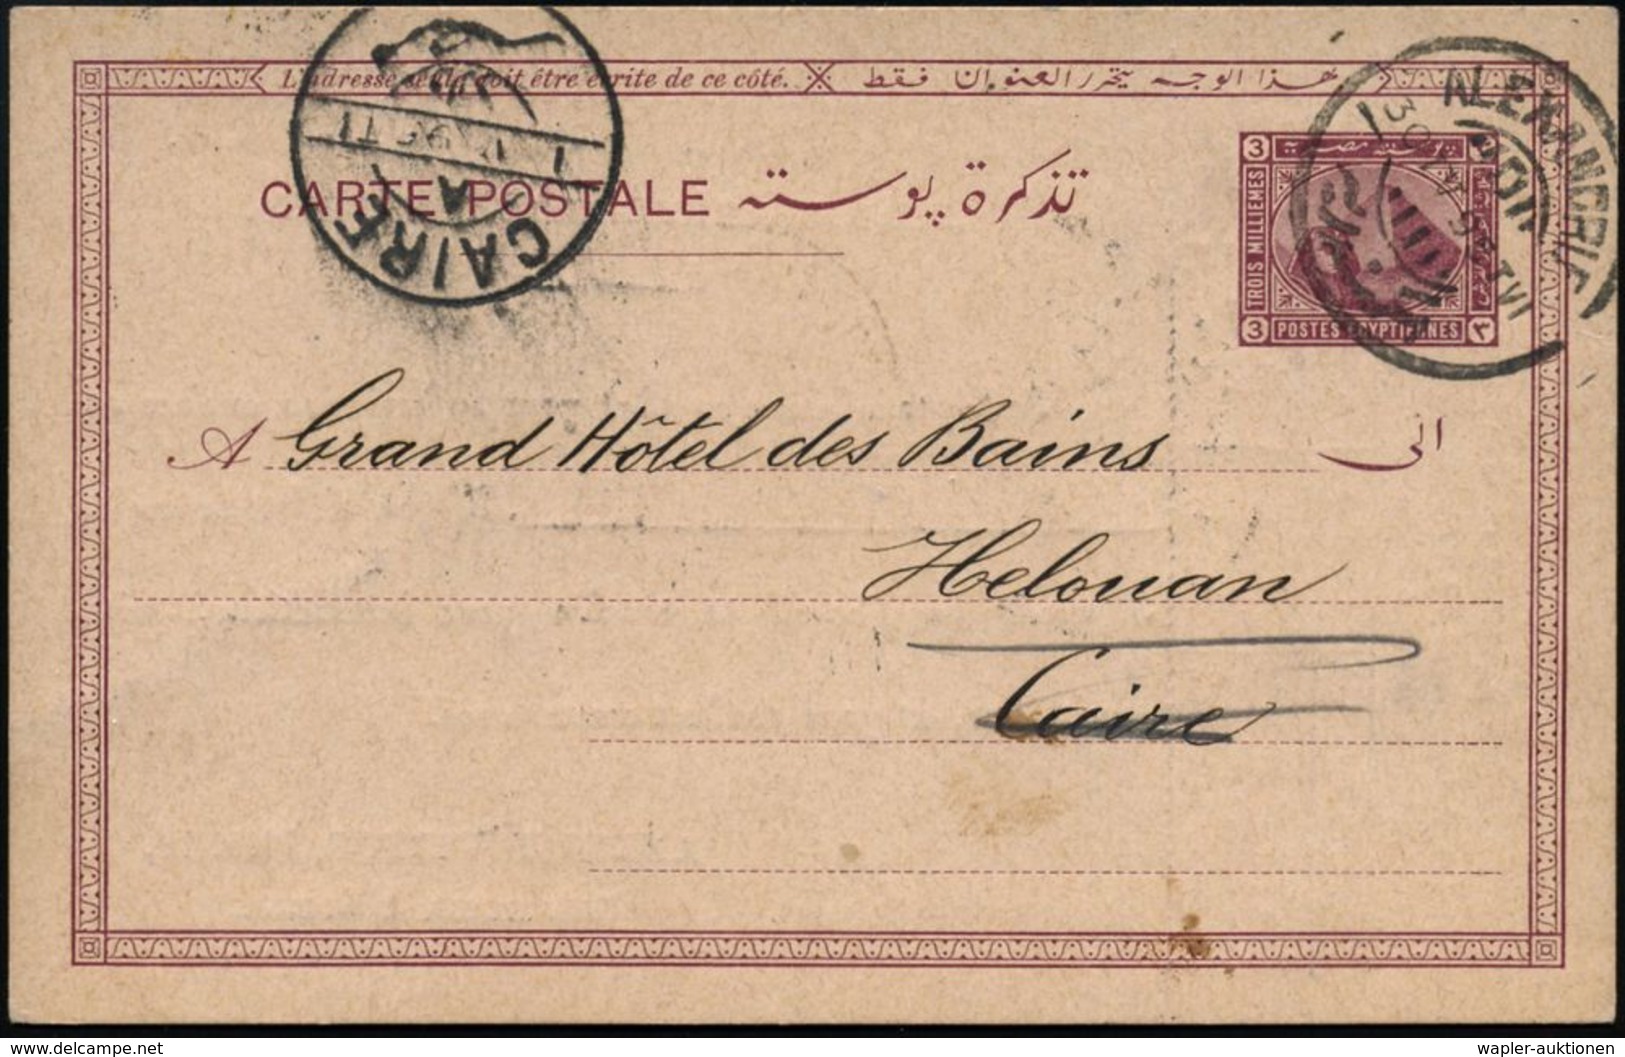 L'adresse seule doit être écrite de ce côté. بهذا الوجه يتحرر العنوان فقط
CARTE POSTALE تذكرة پوسته
CAIRE
A
ALEXANDRIE
بوسته مصريه
3
TROIS MILLIEMES
3 POSTES EGYPTIENNES ٣
A Grand Hôtel des Bains الى
Helouan
Caire
delcampe.net
wapler-auktionen